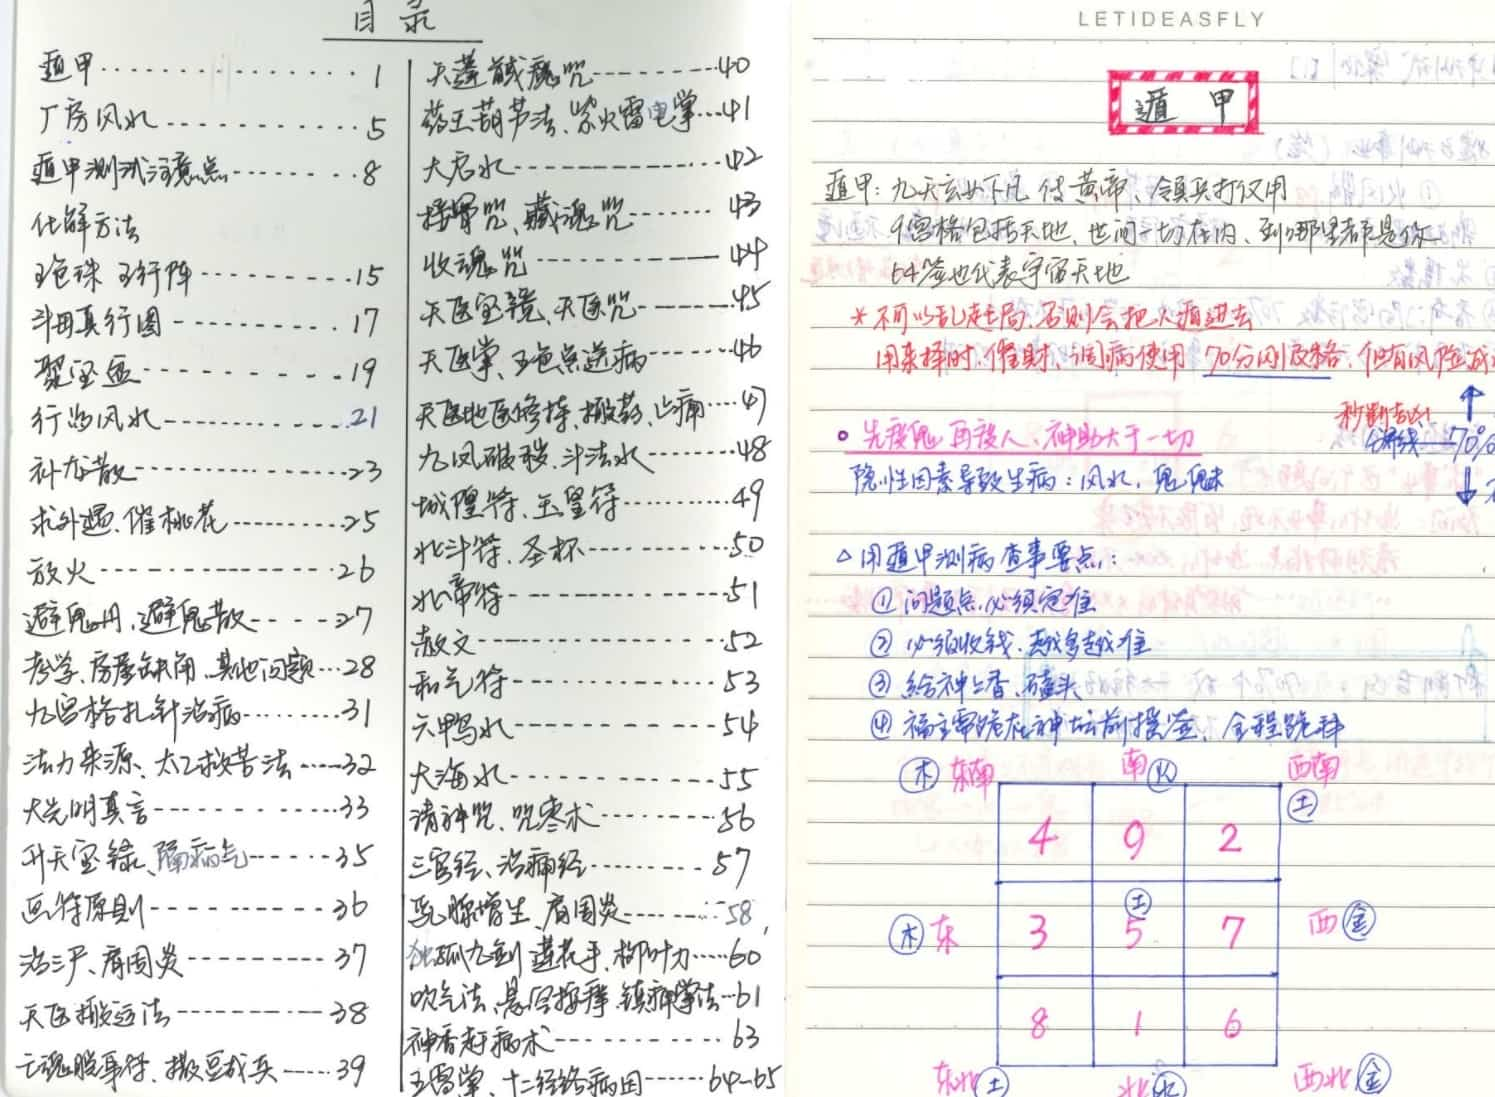 目录
遁甲 1
厂房风水 5
遁甲测试注意点 8
化解方法
五色珠 五行阵 15
斗田真行图 17
聚宝盆 19
行的风水 21
补龙散 23
求外遇、催桃花 25
放火 26
避鬼丹、避鬼散 27
考学、房屋缺角、其他问题 28
九宫格扎针治病 31
法力来源、太乙救苦法 32
大光明真言 33
升天宝箓、隔病气 35
画符原则 36
治三尸、肩周炎 37
天医搬运法 38
亡魂脱身符、撒豆成兵 39
天蓬馘魔咒 40
药王葫芦法、紫火雷电掌 41
大君水 42
接骨咒、藏魂咒 43
收魂咒 44
天医宝镜、天医咒 45
天医掌、五色点送病 46
天医地医修持、搬药、止痛 47
九凤破秽、斗法水 48
城隍符、玉皇符 49
北斗符、圣杯 50
北帝符 51
散文 52
和气符 53
六鸭水 54
大海水 55
请神咒、咒枣术 56
三官经、治痛经 57
乳腺增生、肩周炎 58
独孤九剑 莲花手、柳叶刀 60
吹气法、悬空按摩、镇痛掌法 61
神香赶病术 63
五雷掌、十二经络病因 64-65
LETIDEASFLY
遁甲
遁甲:九天玄女下凡 传黄帝、领兵打仗用
9宫格包括天地、世间一切在内、到哪里都是你
64签也代表宇宙天地
*不可以乱起局、否则会把人遁进去
用来择时、催财、调病使用 70分刚及格、但有风险
秒断吉凶
分界线 70%
先度鬼再度人、神助大于一切
隐性因素导致生病:风水、鬼魅
△用遁甲测病查事要点:
①问题点必须定准
②必须收钱、越多越准
③给神上香、磕头
④福主需跪在神坛前摸签、全程跪拜
木 东南 南 火 西南 土
4 9 2
木 东 3 土 5 7 西 金
8 1 6
东北 土 北 水 西北 金